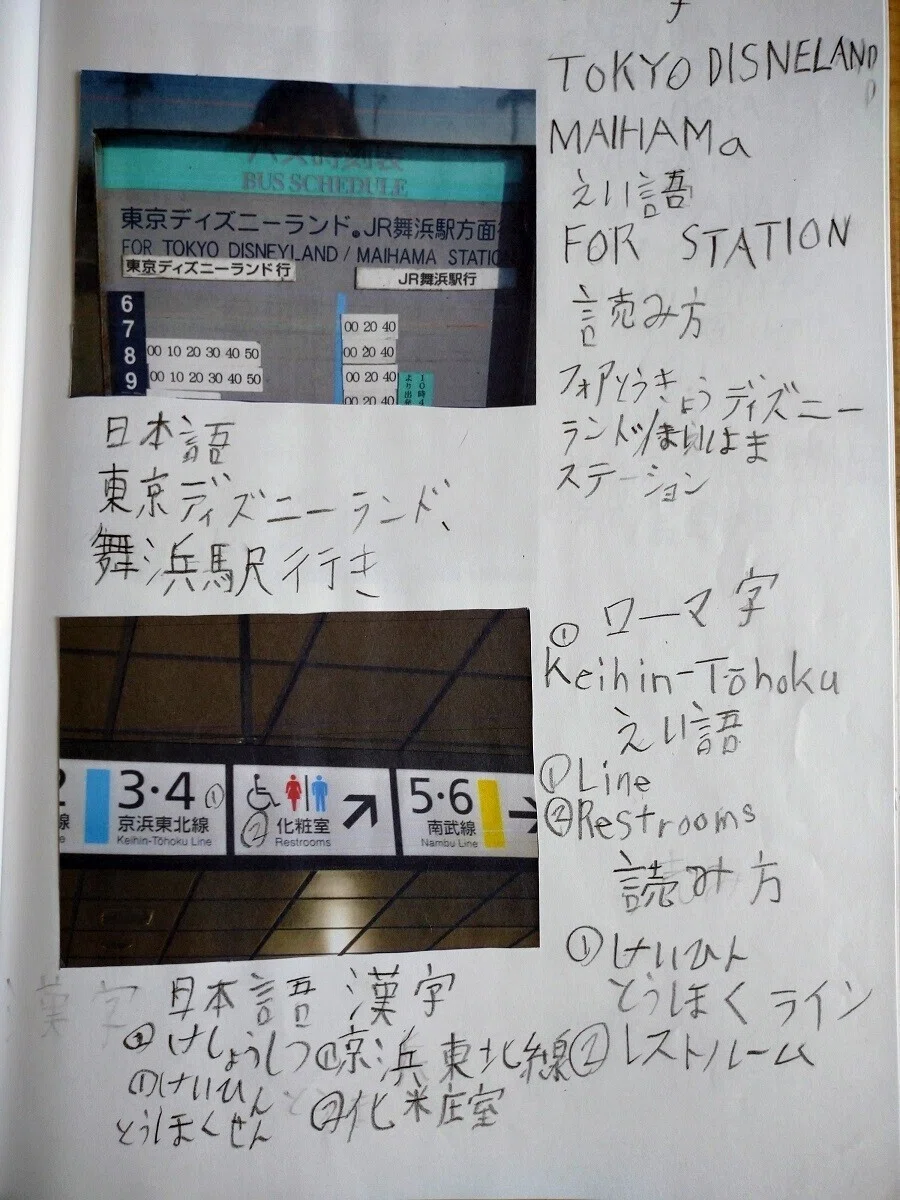 TOKYO DISNELAND
D
MAIHAMa
えい語
FOR STATION
読み方
フォアとうきょうディズニー
ランド/まいはま
ステーション
バス時刻表
BUS SCHEDULE
東京ディズニーランド。JR舞浜駅方面
FOR TOKYO DISNEYLAND / MAIHAMA STATIO
東京ディズニーランド行
JR舞浜駅行
6
7
00 20 40
8
00 10 20 30 40 50
00 20 40
9
00 10 20 30 40 50
00 20 40
00 20 40
日本語
東京ディズニーランド、
舞浜駅行き
2
線
e
3・4 ①
京浜東北線
Keihin-Tōhoku Line
② 化粧室
Restrooms
5・6
南武線
Nambu Line
① ローマ字
Keihin-Tōhoku
えい語
①Line
②Restrooms
読み方
①けいひん
とうほくライン
②レストルーム
漢字
日本語 漢字
②けしょうしつ
①けいひん
とうほくせん
①京浜東北線
②化粧室